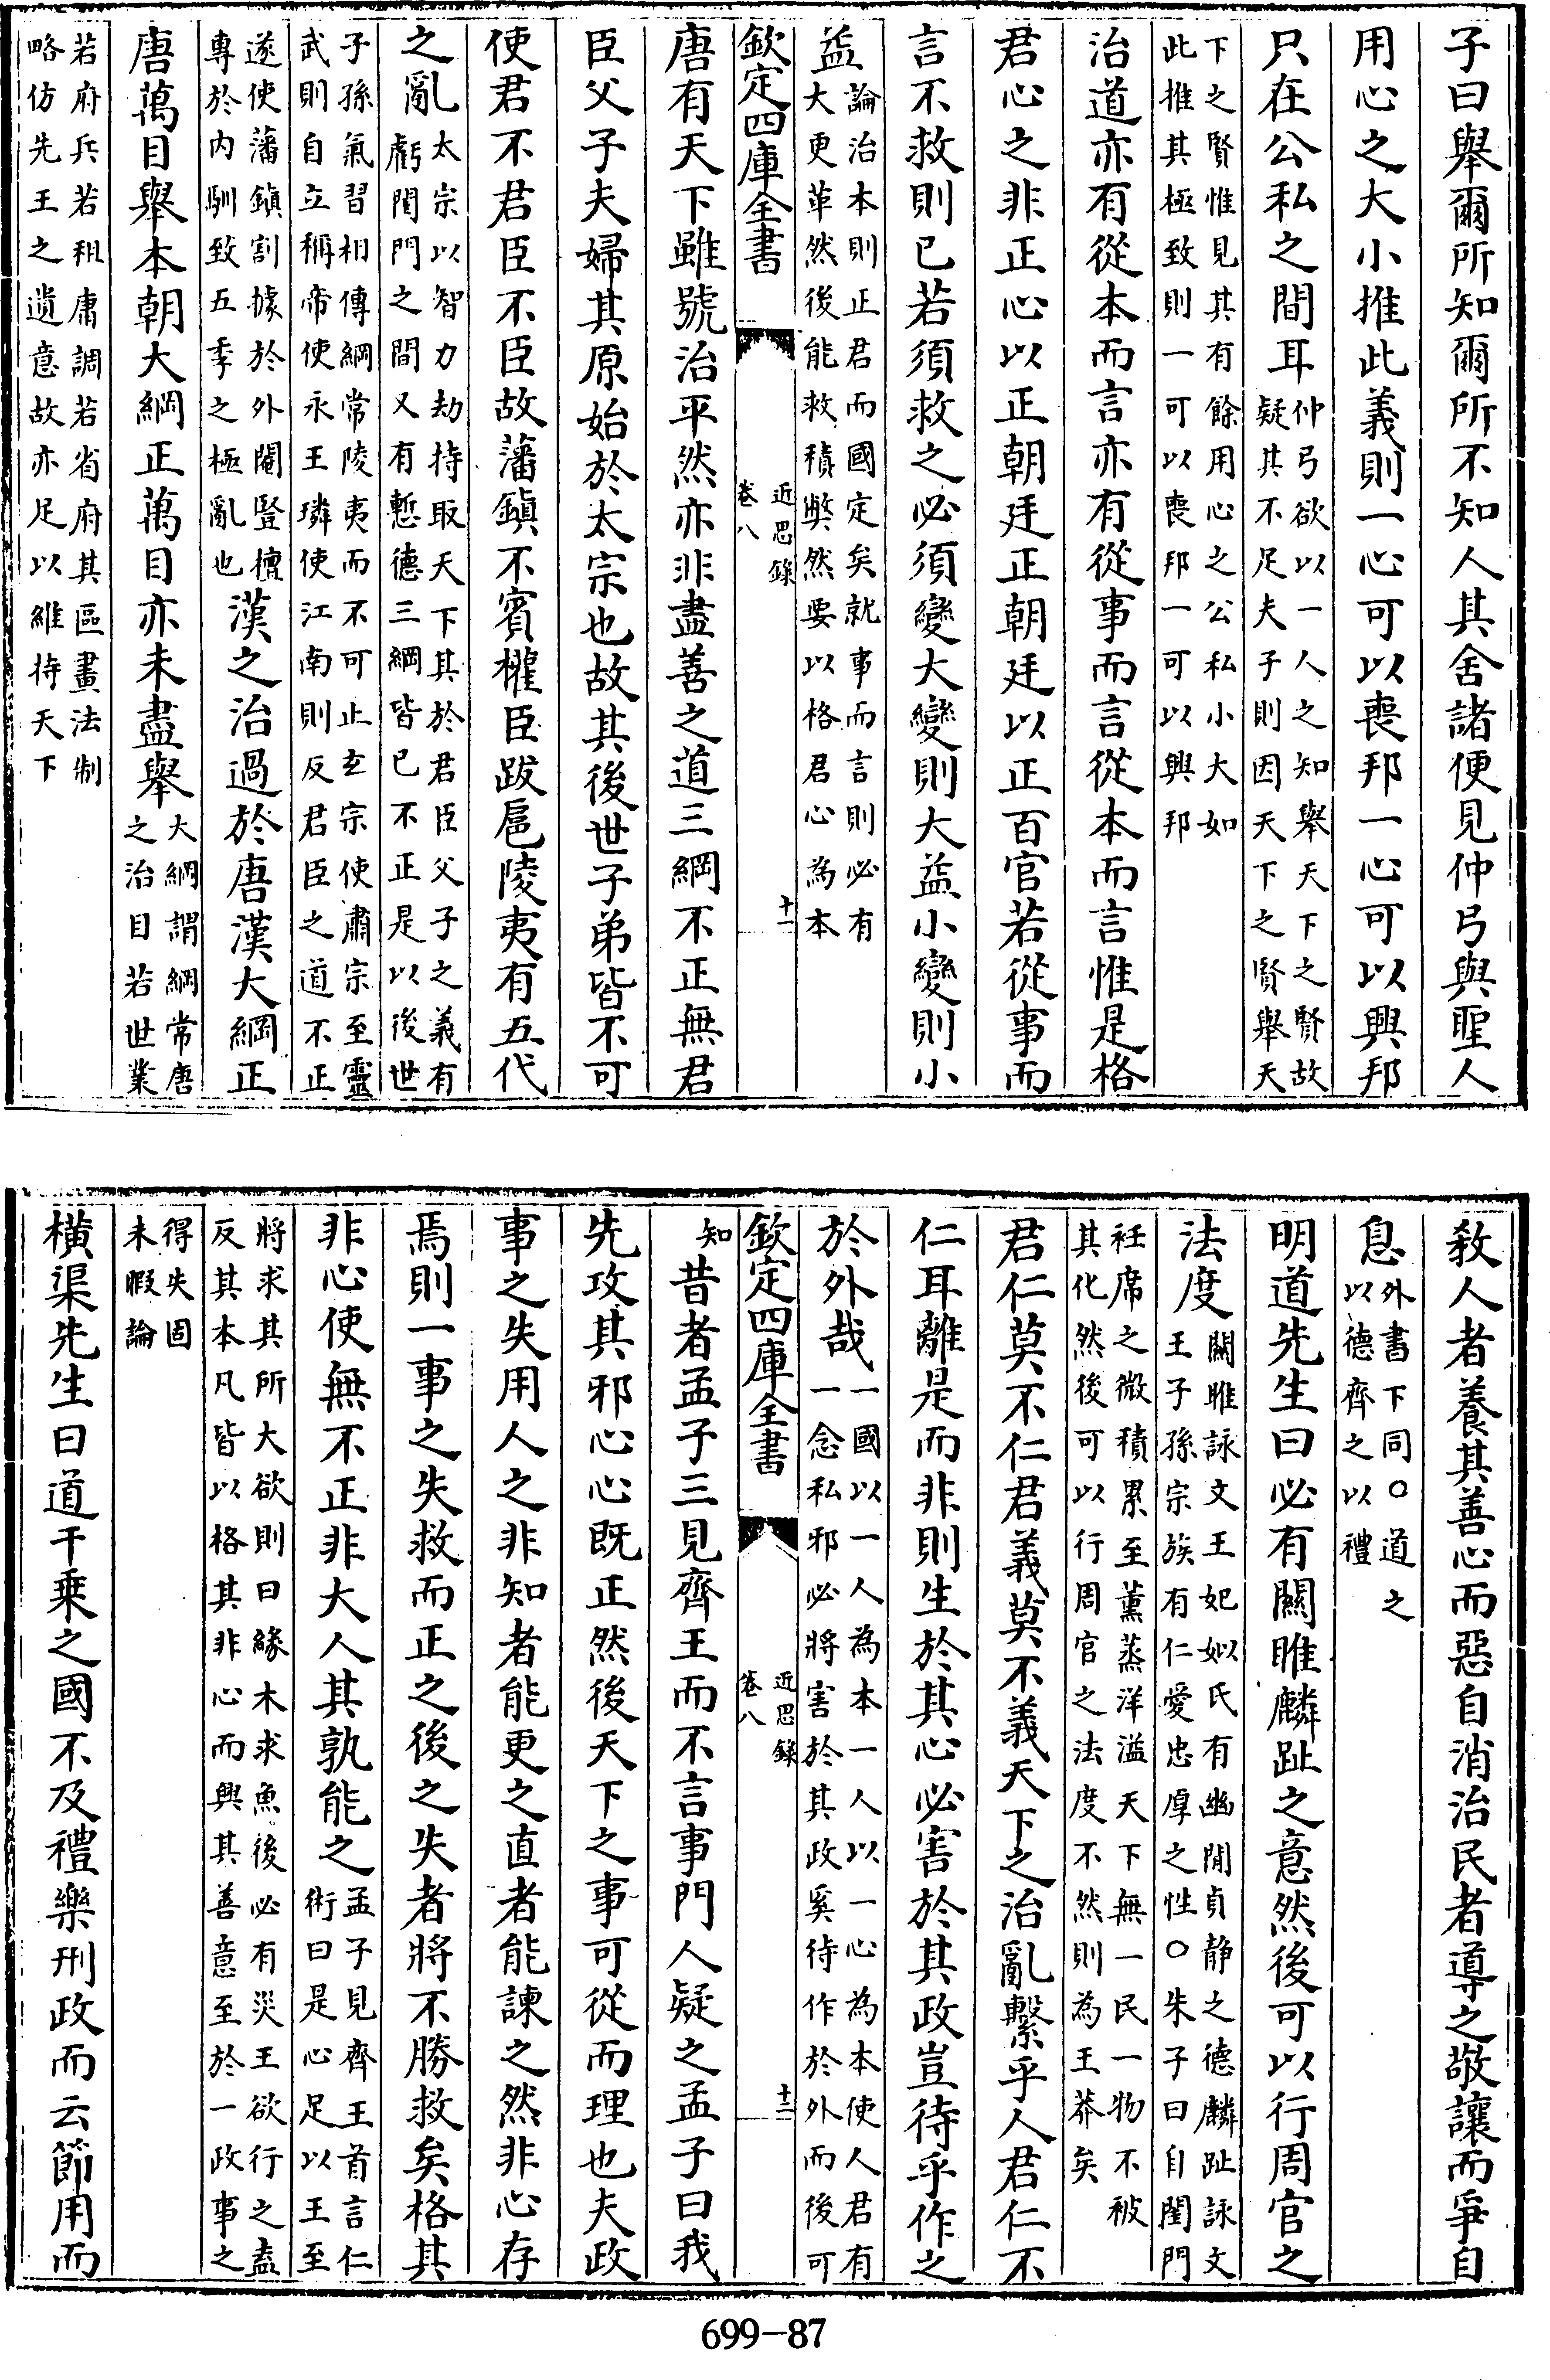 子曰舉爾所知爾所不知人其舍諸便見仲弓與聖人
用心之大小推此義則一心可以喪邦一心可以興邦
只在公私之間耳仲弓欲以一人之知舉天下之賢故
疑其不足夫子則因天下之賢舉天
下之賢惟見其有餘用心之公私小大如
此推其極致則一可以喪邦一可以興邦
治道亦有從本而言亦有從事而言從本而言惟是格
君心之非正心以正朝廷正朝廷以正百官若從事而
言不救則已若須救之必須變大變則大益小變則小
益論治本則正君而國定矣就事而言則必有
大更革然後能救積弊然要以格君心為本
欽定四庫全書
近思錄
卷八
十一
唐有天下雖號治平然亦非盡善之道三綱不正無君
臣父子夫婦其原始於太宗也故其後世子弟皆不可
使君不君臣不臣故藩鎮不賓權臣跋扈陵夷有五代
之亂太宗以智力劫持取天下其於君臣父子之義有
虧閨門之間又有慙德三綱皆已不正是以後世
子孫氣習相傳綱常陵夷而不可止玄宗使肅宗至靈
武則自立稱帝使永王璘使江南則反君臣之道不正
遂使藩鎮割據於外閹豎擅
專於內馴致五季之極亂也漢之治過於唐漢大綱正
唐萬目舉本朝大綱正萬目亦未盡舉大綱謂綱常唐
之治目若世業
若府兵若租庸調若省府其區畫法制
略仿先王之遺意故亦足以維持天下
教人者養其善心而惡自消治民者導之敬讓而爭自
息外書下同○道之
以德齊之以禮
明道先生曰必有關雎麟趾之意然後可以行周官之
法度關雎詠文王妃姒氏有幽閒貞静之德麟趾詠文
王子孫宗族有仁愛忠厚之性○朱子曰自閨門
衽席之微積累至薰蒸洋溢天下無一民一物不被
其化然後可以行周官之法度不然則為王莽矣
君仁莫不仁君義莫不義天下之治亂繫乎人君仁不
仁耳離是而非則生於其心必害於其政豈待乎作之
於外哉一國以一人為本一人以一心為本使人君有
一念私邪必將害於其政奚待作於外而後可
欽定四庫全書
近思錄
卷八
十二
知昔者孟子三見齊王而不言事門人疑之孟子曰我
先攻其邪心心既正然後天下之事可從而理也夫政
事之失用人之非知者能更之直者能諫之然非心存
焉則一事之失救而正之後之失者將不勝救矣格其
非心使無不正非大人其孰能之孟子見齊王首言仁
術曰是心足以王至
將求其所大欲則曰緣木求魚後必有災王欲行之盍
反其本凡皆以格其非心而興其善意至於一政事之
得失固
未暇論
橫渠先生曰道千乗之國不及禮樂刑政而云節用而
699-87